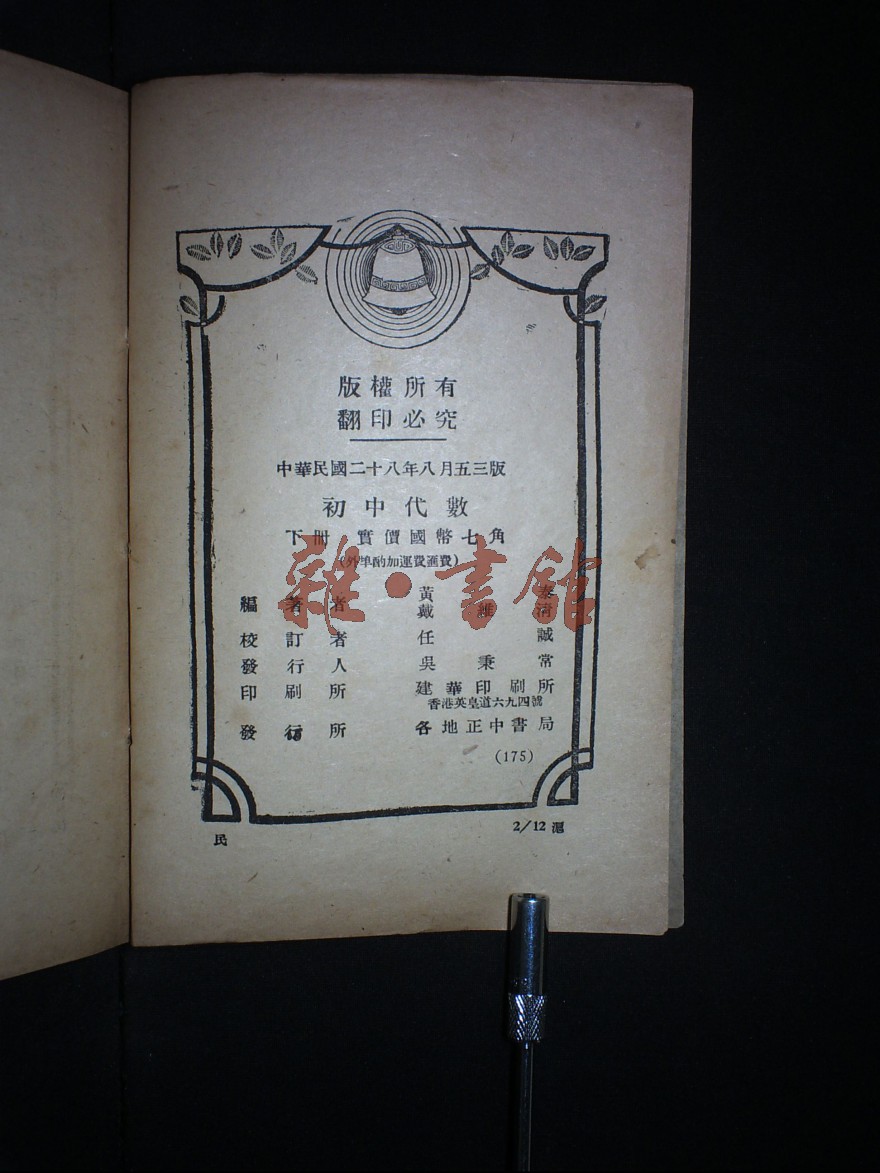 版權所有
翻印必究
中華民國二十八年八月五三版
初中代數
下冊 實價國幣七角
(外埠酌加運費匯費)
編著者 黃泰
戴維清
校訂者 任誠
發行人 吳秉常
印刷所 建華印刷所
香港英皇道六九四號
發行所 各地正中書局
(175)
民 2/12 滬
雜·書館